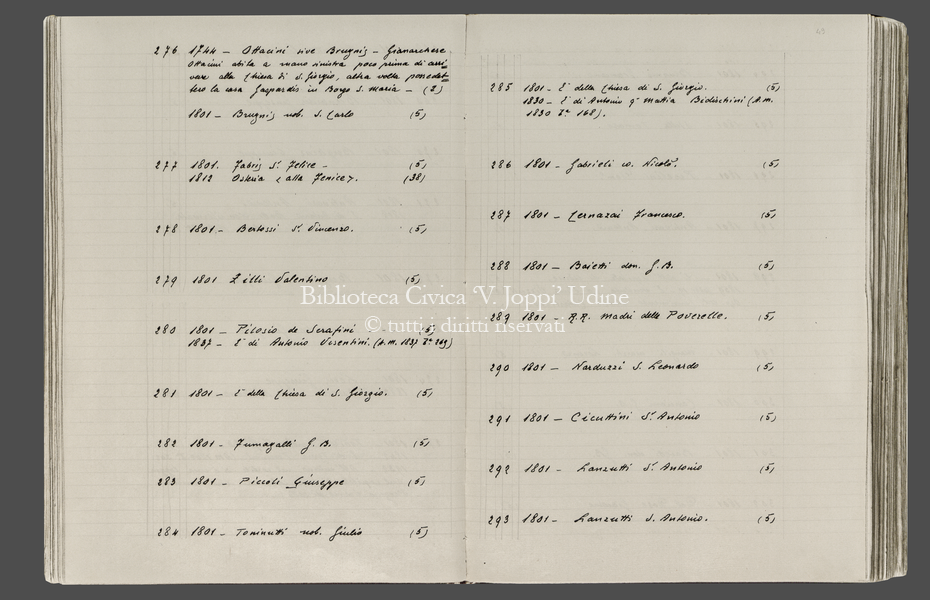 276 1744 – Ottacini sive Brugnis – Gianarchere
Ottacini abita a mano sinistra poco prima di arri=
vare alla Chiesa di S. Giorgio, altra volta possedet=
tero la casa Gaspardis in Borgo S. Maria – (2)
1801 – Brugnis nob. S. Carlo (5)
277 1801. Fabris Sr. Felice – (5)
1812 Osteria "alla Fenice". (38)
278 1801 – Bertossi Sr. Vincenzo. (5)
279 1801 Zilli Valentino (5)
280 1801 – Pilosio de Serafini (5)
1837 – È di Antonio Visentini. (A.m. 1837 Fº 269)
281 1801 – È della Chiesa di S. Giorgio. (5)
282 1801 – Fumagalli G. B. (5)
283 1801 – Piccoli Giuseppe (5)
284 1801 – Toninutti nob. Giulio (5)
285 1801 – È della Chiesa di S. Giorgio. (5)
1830 – È di Antonio qm Mattia Bidischini (A.m.
1830 Fº 168).
286 1801 – Gabrieli co. Nicolò. (5)
287 1801 – Cernazai Francesco. (5)
288 1801 – Baietti don. G. B. (5)
289 1801 – R.R. Madri delle Poverelle. (5)
290 1801 – Narduzzi S. Leonardo (5)
291 1801 – Cicuttini Sr. Antonio (5)
292 1801 – Lanzutti Sr. Antonio (5)
293 1801 – Lanzutti S. Antonio. (5)
Biblioteca Civica 'V. Joppi' Udine
© tutti i diritti riservati